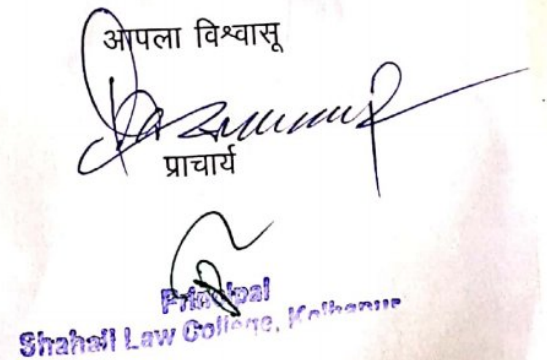 आपला विश्वासू
प्राचार्य
Principal
Shahaji Law College, Kolhapur